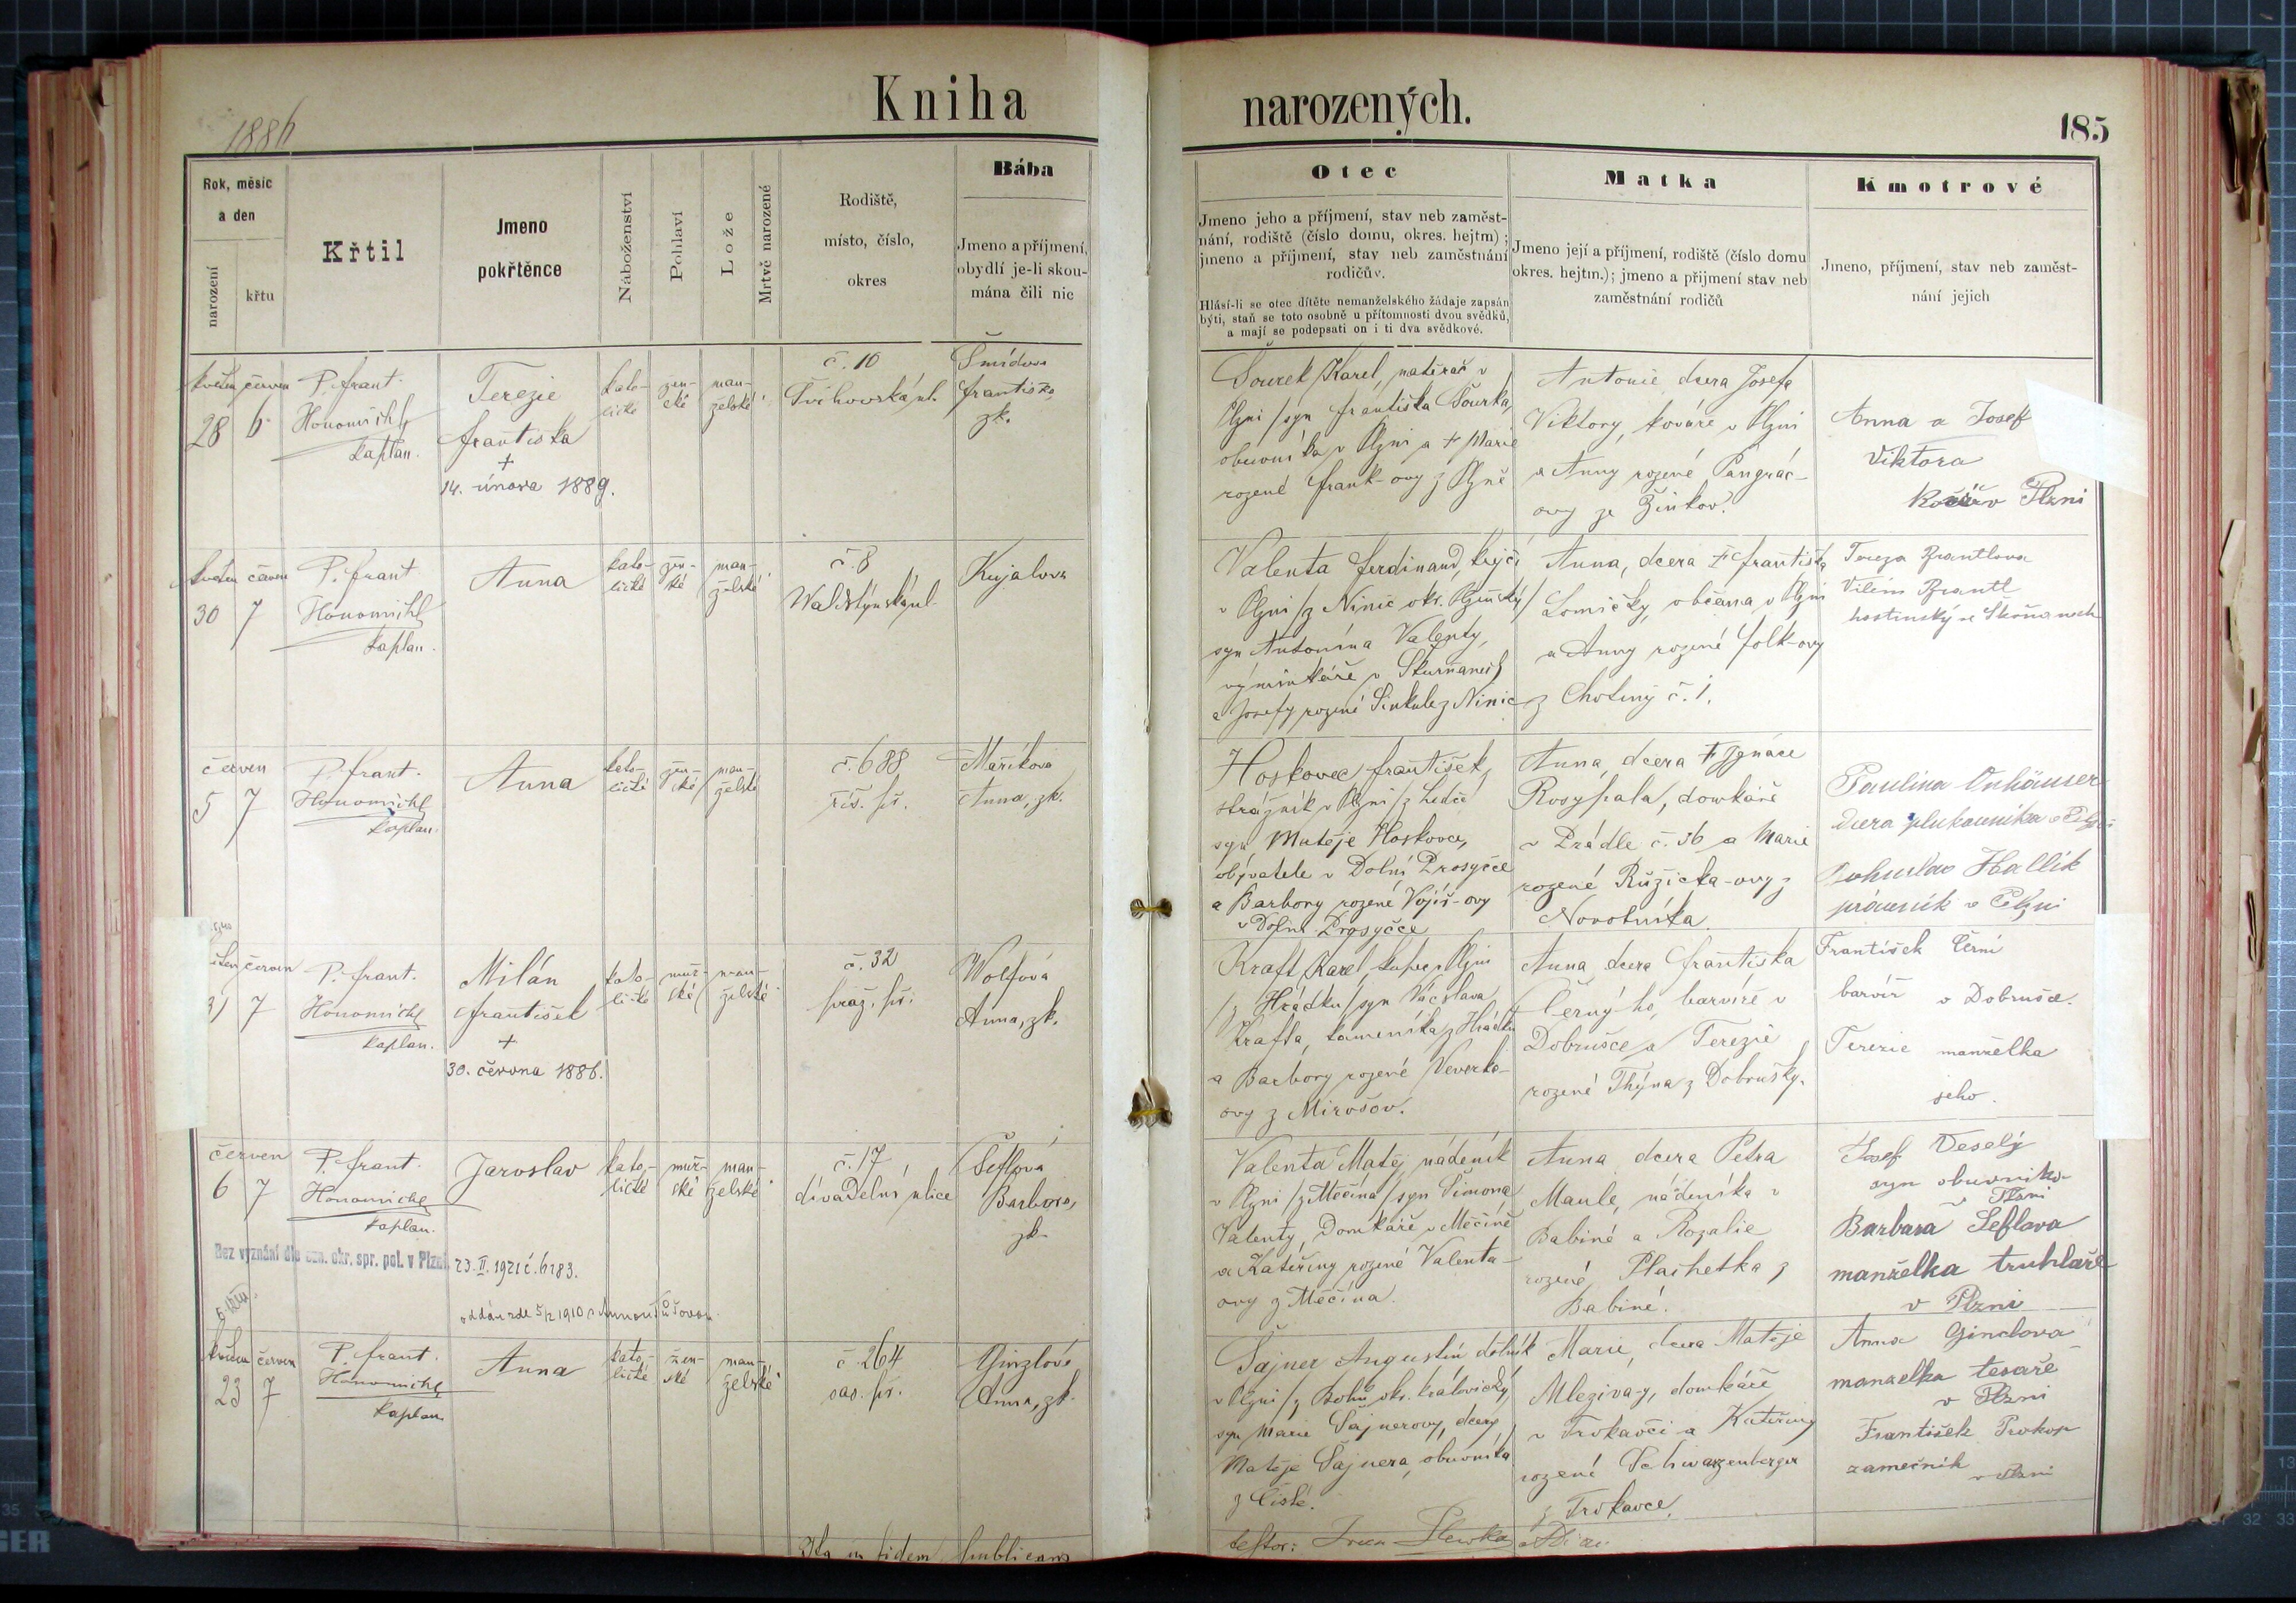 Kniha narozených.
1886
185
Rok, měsíc
a den
narození
křtu
Křtil
Jmeno
pokřtěnce
Náboženství
Pohlaví
Lože
Mrtvě narozené
Rodiště,
místo, číslo,
okres
Bába
Jmeno a příjmení,
obydlí je-li skou-
mána čili nic
Otec
Jmeno jeho a příjmení, stav neb zaměst-
nání, rodiště (číslo domu, okres. hejtm) ;
jmeno a příjmení, stav neb zaměstnání
rodičův.
Hlásí-li se otec dítěte nemanželského žádaje zapsán
býti, staň se toto osobně u přítomnosti dvou svědků,
a mají se podepsati on i ti dva svědkové.
Matka
Jmeno její a příjmení, rodiště (číslo domu
okres. hejtm.); jmeno a příjmení stav neb
zaměstnání rodičů
Kmotrové
Jmeno, příjmení, stav neb zaměst-
nání jejich
květen červen
28 6
P. Frant.
Honomichl
kaplan.
Terezie
Františka
+
14. února 1889.
kato-
lické
žen-
ské
man-
želské
č. 10
Šmídova
Františka
zk.
Šourek Karel, natěrač v
Plzni / syn Františka Šourka,
obuvníka v Plzni a + Marie
rozené Frank-ovy z Plzně
Antonie dcera Josefa
Viktory, kováře v Plzni
a Anny rozené Pangrác-
ovy ze Žinkov.
Anna a Josef
Viktora
Kovář v Plzni
květen červen
30 7
P. Frant
Honomichl
kaplan.
Anna
kato-
lické
žen-
ské
man-
želské
č. 8
Waldštýnská ul.
Kujalova
Valenta Ferdinand, krejčí
v Plzni / z Ninic okr. Plzeňský /
syn Antonína Valenty,
výminkáře v
a Josefy rozené Sinkule z Ninic
Anna, dcera + Františka
Lomičky, občana v Plzni
a Anny rozené Folk-ovy
z Chotiny č. 1.
Tereza Brantlova
Vilém Brantl
hostinský ve
červen
5 7
P. Frant.
Honomichl
kaplan.
Anna
kato-
lické
žen-
ské
man-
želské
č. 688
říš. př.
Maříkova
Anna, zk.
Hoskovec František,
strážník v Plzni / z Ledče
syn Matěje Hoskovce,
obyvatele v Dolní Prosyčce
a Barbory rozené Vojíš-ovy
v Dolní Prosyčce
Anna, dcera + Ignáce
Rosypala, domkáře
v Prádle č. 36 a Marie
rozené Růžička-ovy z
Novotníka.
Paulina
dcera plukovníka v Plzni
Bohuslav Hallik
právník v Plzni
červen
31 7
P. Frant.
Honomichl
kaplan.
Milán
František
+
30. června 1886.
kato-
lické
muž-
ské
man-
želské
č. 32
praž. př.
Wolfova
Anna, zk.
Kraft Karel, kupec v Plzni
/ z Hrádku / syn Václava
Krafta, kameníka z Hrádku
a Barbory rozené Neverka-
ovy z Mirošov.
Anna, dcera Františka
Černýho, barvíře v
Dobrušce a Terezie
rozené Thýna z Dobrušky.
František Černí
barvíř v Dobrušce.
Terezie manželka
jeho.
červen
6 7
P. Frant.
Honomichl
kaplan.
Jaroslav
kato-
lické
muž-
ské
man-
želské
č. 17
divadelní ulice
Šeflová
Barbora,
zk.
Bez vyznání dle ozn. okr. spr. pol. v Plzni 23. II. 1921 č. 6283.
Valenta Matěj, nádeník
v Plzni / z Měčína / syn Šimona
Valenty, Domkáře v Měčíně
a Kateřiny rozené Valenta-
ovy z Měčína.
Anna, dcera Petra
Maule, nádeníka v
Babiné a Rozalie
rozené Plachetka z
Babiné.
Josef Veselý
syn obuvníka
v Plzni
Barbara Šeflova
manželka truhláře
v Plzni
květen červen
23 7
P. Frant.
Honomichl
kaplan
Anna
kato-
lické
žen-
ské
man-
želské
č. 264
sas. př.
Ginzlová
Anna, zk.
Šajner Augustin dělník
v Plzni / z Bohů okr. královický,
syn Marie Šajnerovy, dcery
Matěje Šajnera, obuvníka
z Čisté.
Marie, dcera Matěje
Mleziva-y, domkáře
v Trokavci a Kateřiny
rozené Schwarzenberger
z Trokavce.
Anna Ginclova
manželka tesaře
v Plzni
František Prokop
zámečník v Plzni
Ita in fidem publicam